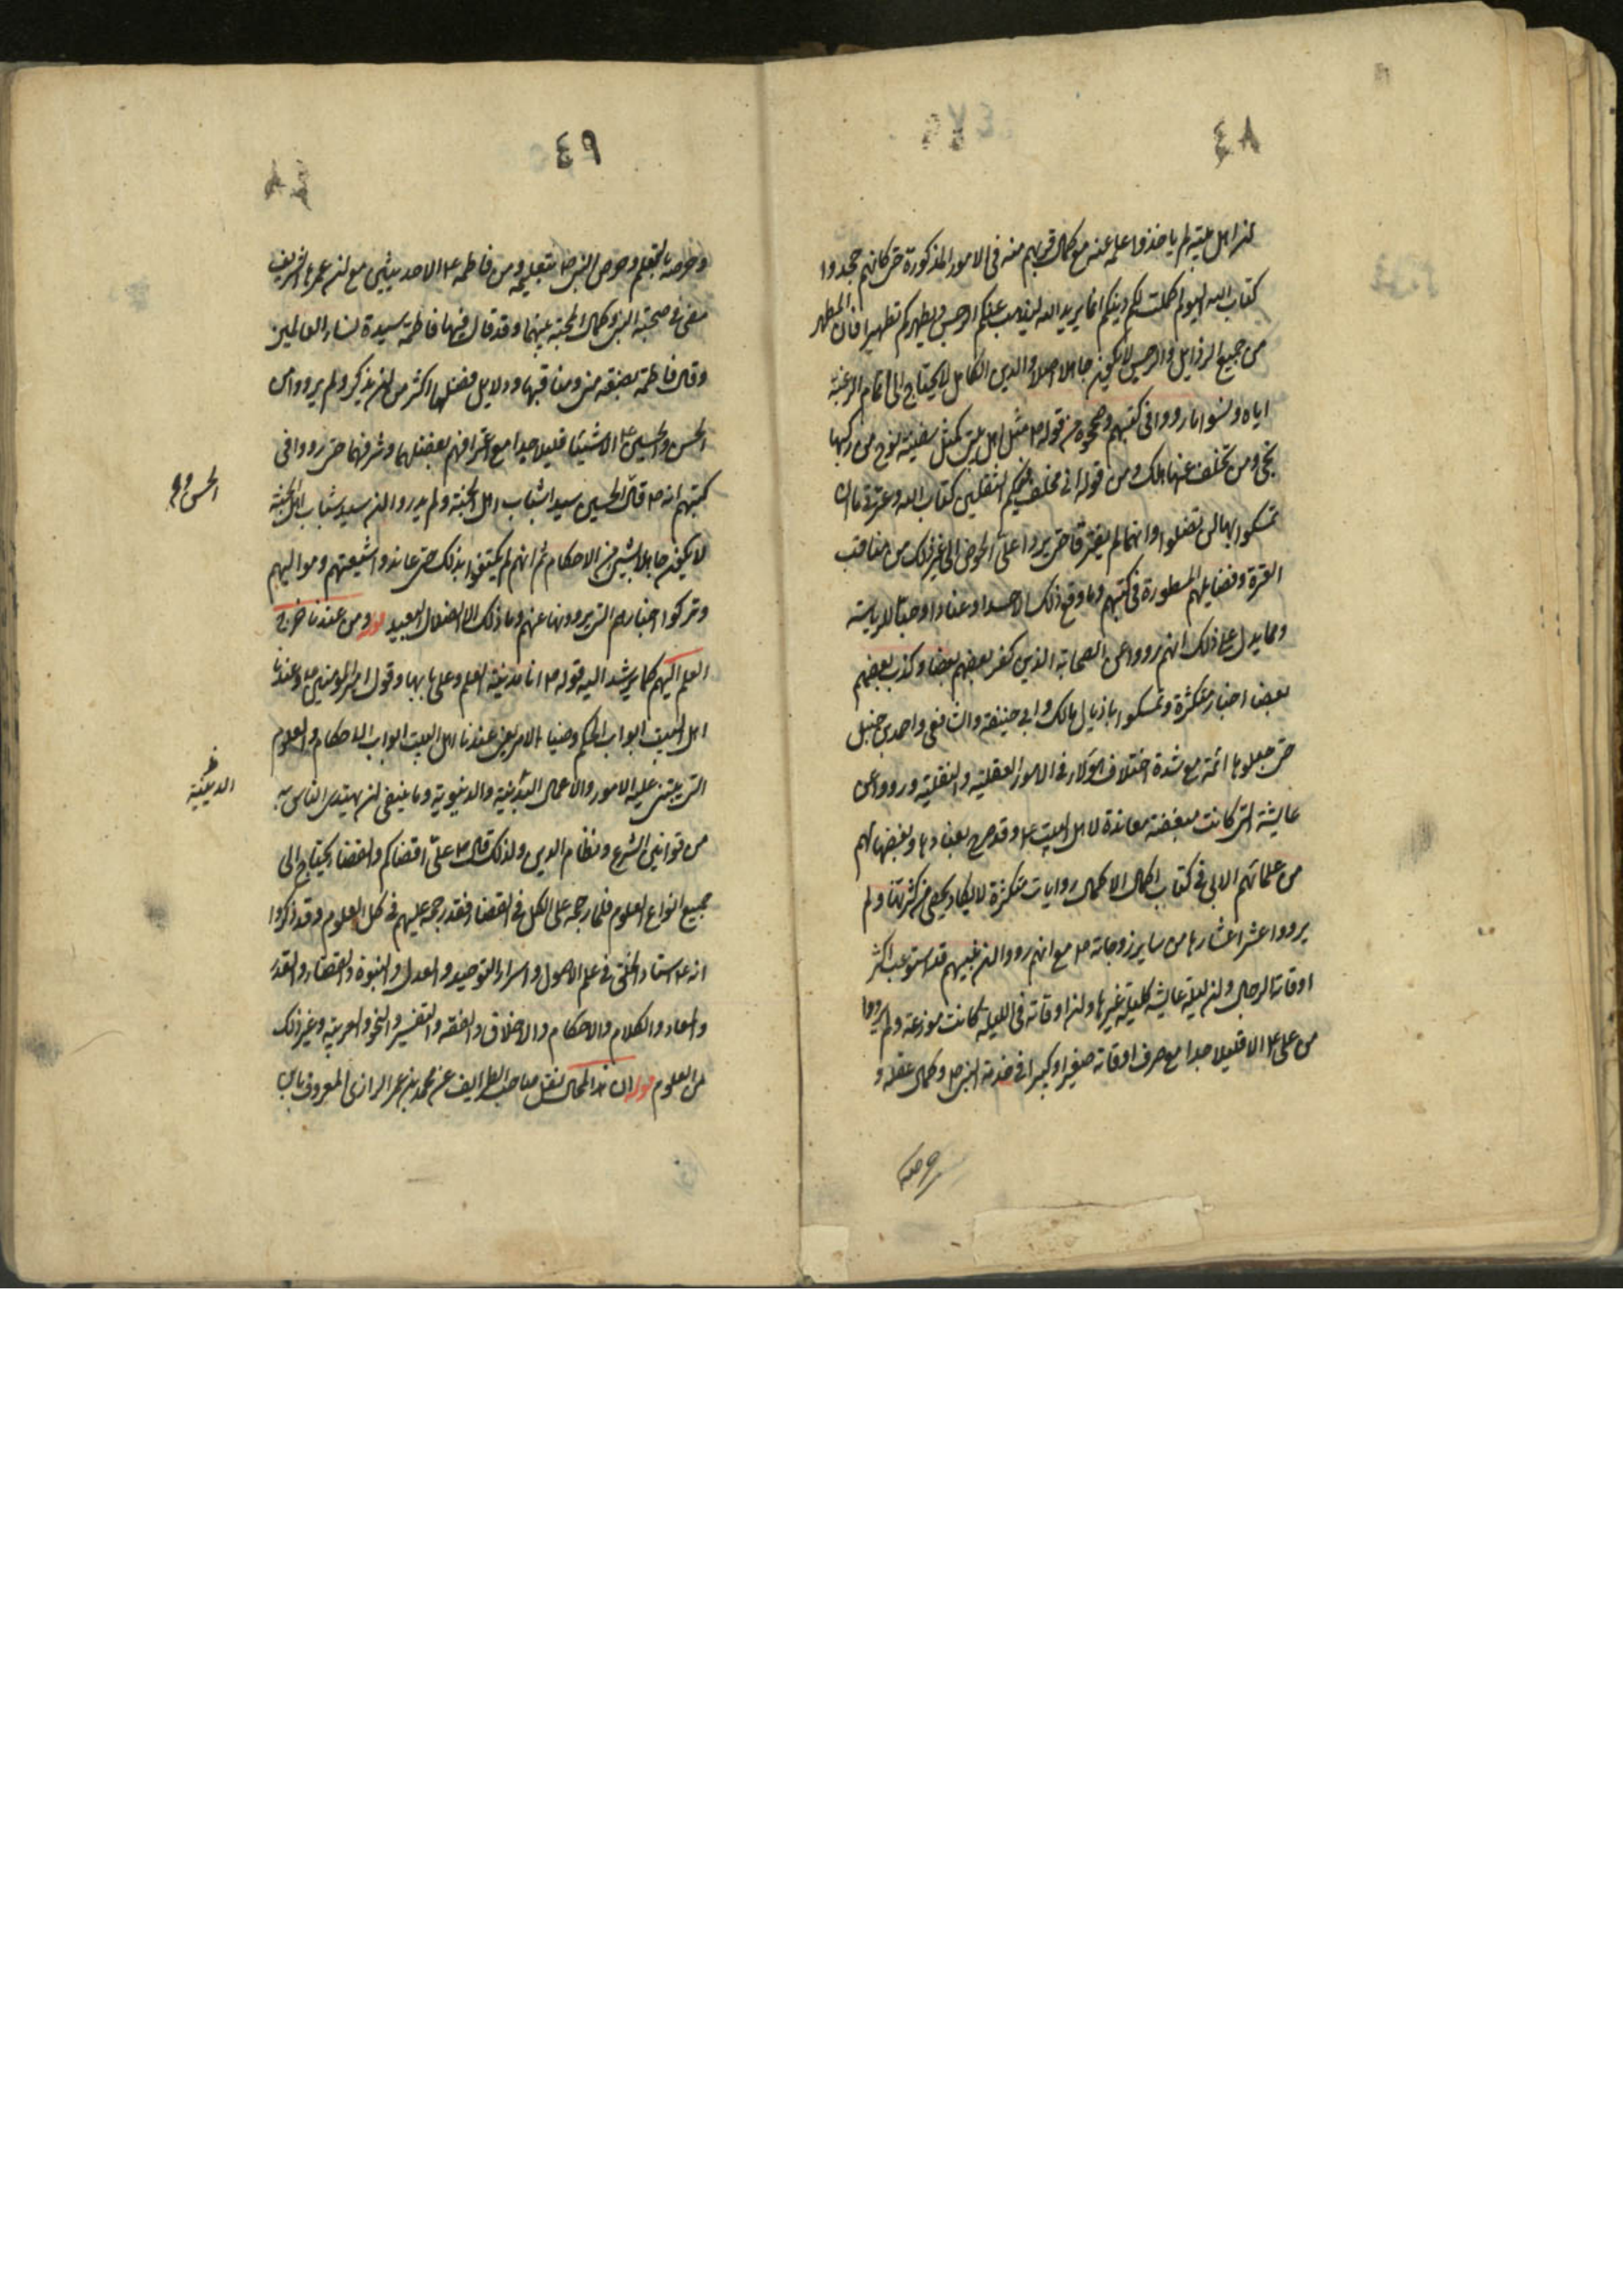 ٤٨
لن اهل بيته لم ياخذوا علمه عنه مع كمال قربهم منه فى الامور المذكورة حتى كانهم جحدوا
كتاب الله اليوم اكملت لكم دينكم انما يريد الله ليذهب عنكم الرجس ويطهركم تطهيرا فان المطهر
من جميع الرذايل والرجس لا يكون جاهلا اصلا والدين الكامل لا يحتاج الى اتمام الرغبة
اياه ونسوا ما رووا فى كتبهم وصححوه من قوله ص مثل اهل بيتى كمثل سفينة نوح من ركبها
نجى ومن تخلف عنها هلك ومن قوله انى مخلف فيكم الثقلين كتاب الله وعترتى ما ان
تمسكوا بهما لن تضلوا وانهما لم يفترقا حتى يردا على الحوض الى غير ذلك من مناقب
العترة وفضايلهم المسطورة فى كتبهم وما وقع ذلك الا حسدا وعنادا وحبا للرياسة
ومما يدل على ذلك انهم رووا عن الصحابة الذين كفر بعضهم بعضا وكذب بعضهم
بعضا اخبار متكثرة وتمسكوا باذيال مالك وابى حنيفة والشافعى واحمد بن حنبل
حتى جعلوها ائمة مع شدة اختلاف هؤلاء فى الامور العقلية والنقلية ورووا عن
عايشة التى كانت مبغضة معاندة لاهل البيت ع وقد صرح بعنادها وبغضها لهم
من علمائهم الابى فى كتاب اكمال الاكمال روايات متكثرة لا يكاد يحصى من كثرتها ولم
يرووا عشر اعشارها من ساير زوجاته ص مع انهم رووا لن غيبهم قد استوعب اكثر
اوقاته الرجال ولن ليلة عايشه كليلة غيرها ولن اوقاته فى الليلة كانت موزعة ولم يرووا
من على ع الا قليلا جدا مع صرف اوقاته صغيرا وكبيرا فى خدمة النبى ص وكمال عقله و
حرصه
٤٩
٤٨
وحرصه بالتعلم وحرص النبى ص بتعليمه ومن فاطمه ع الا حديثين مع لن عمرها الشريف
مضى فى صحبة النبى وكمال المحبة بينهما وقد قال فيها فاطمة سيدة نساء العالمين
وقال فاطمة بضعة منى ومناقبها ودلايل فضلها اكثر من لن يذكر ولم يرووا من
الحسن والحسين ع الا شيئا قليلا جدا مع اعترافهم بفضلهما وشرفهما حتى رووا فى
كتبهم انه ص قال الحسين سيدا شباب اهل الجنة ولم يدروا لن سيد شباب اهل الجنة
الحسن و
لا يكون جاهلا بشىء من الاحكام ثم انهم لم يكتفوا بذلك حتى عاندوا شيعتهم ومواليهم
وتركوا اخبارهم التى يروونها عنهم وما ذلك الا الضلال البعيد قوله ومن عندنا خرج
العلم اليهم كما يرشد اليه قوله ص انا مدينة العلم وعلى بابها وقول امير المؤمنين ع وعندنا
اهل البيت ابواب الحكم وضياء الامر يعنى عندنا اهل البيت ابواب الاحكام والعلوم
التى يبتنى عليه الامور والاعمال البدنية والدنيوية وما ينبغى لن يهتدى الناس به
الدينية
من قوانين الشرع ونظام الدين ولذلك قال ص على اقضاكم والقضا يحتاج الى
جميع انواع العلوم فلما رجحه على الكل فى القضا فقد رجحه عليهم فى كل العلوم وقد ذكروا
انه ع استاد الخلق فى علم الاصول واسرار التوحيد والعدل والنبوة والقضاء والقدر
والمعاد والكلام والاحكام والاخلاق والفقه والتفسير والنحو والعربية وغير ذلك
من العلوم قوله ان هذا لمحال نقل صاحب الطرايف عن محمد بن عمر الرازى المعروف بابن